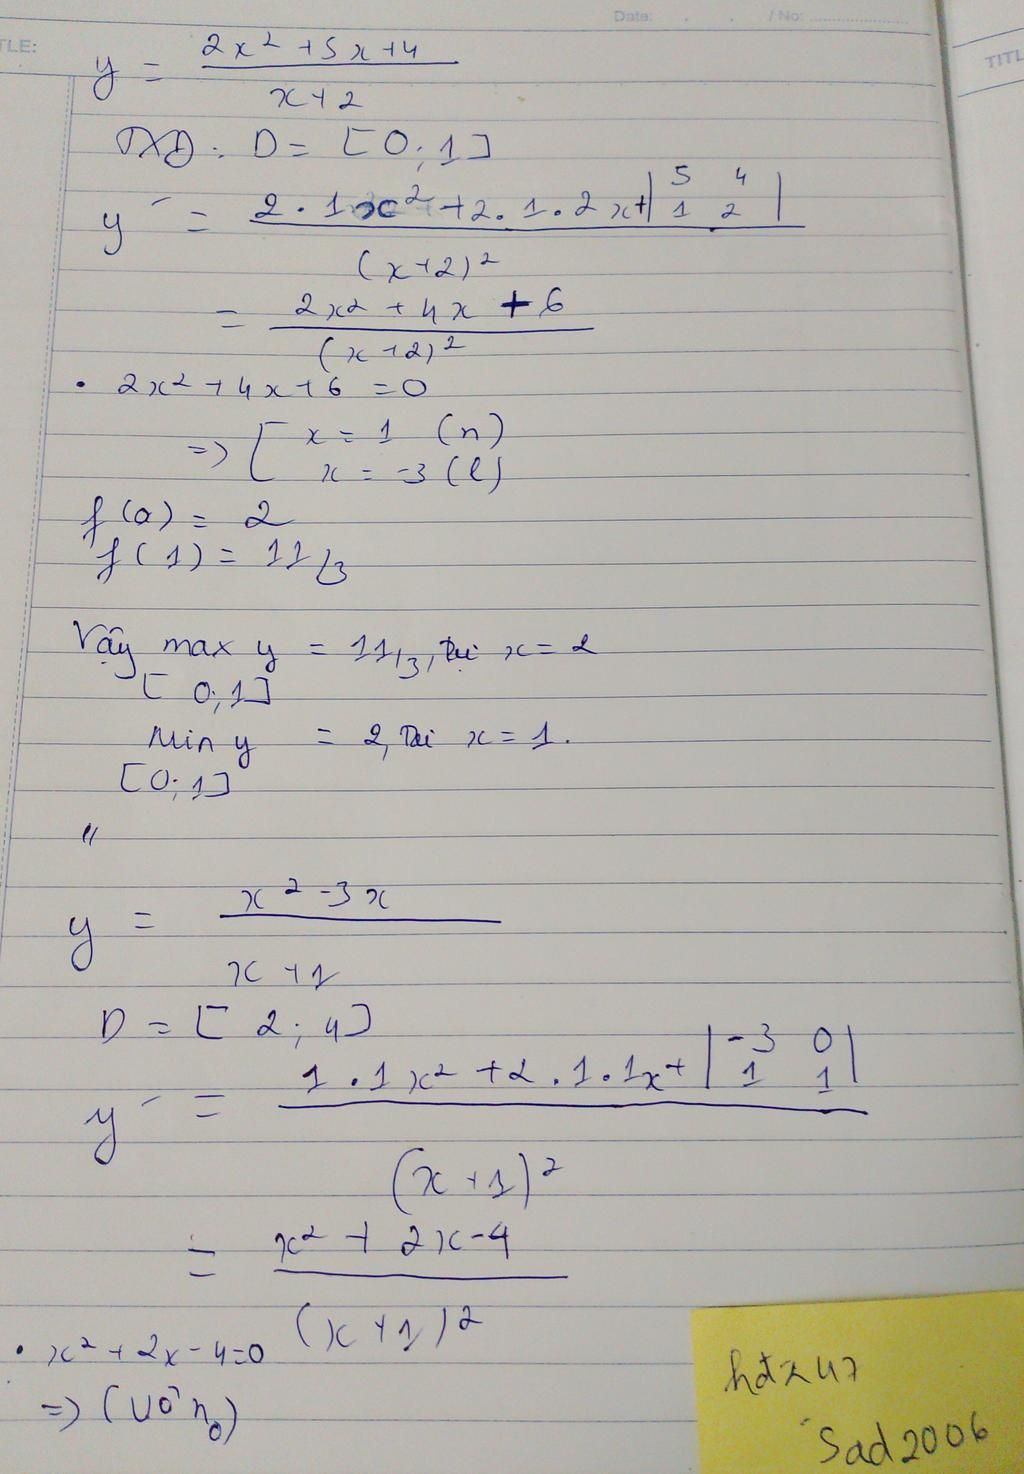 Date: . . / No: ..................
TLE:
TITL
y = (2x² + 5x + 4)/(x + 2)
TXĐ: D = [0; 1]
y' = (2 . 1x² + 2 . 1 . 2x + |5 4; 1 2|)/(x + 2)²
= (2x² + 4x + 6)/(x + 2)²
• 2x² + 4x + 6 = 0
=> [ x = 1 (n)
x = -3 (l)
f(0) = 2
f(1) = 11/3
Vậy max y = 11/3, tại x = 2
[0; 1]
Min y = 2, tại x = 1.
[0; 1]
"
y = (x² - 3x)/(x + 1)
D = [2; 4]
y' = (1 . 1x² + 2 . 1 . 1x + |-3 0; 1 1|)/(x + 1)²
= (x² + 2x - 4)/(x + 1)²
• x² + 2x - 4 = 0
=> (Vô n₀)
Sad2006